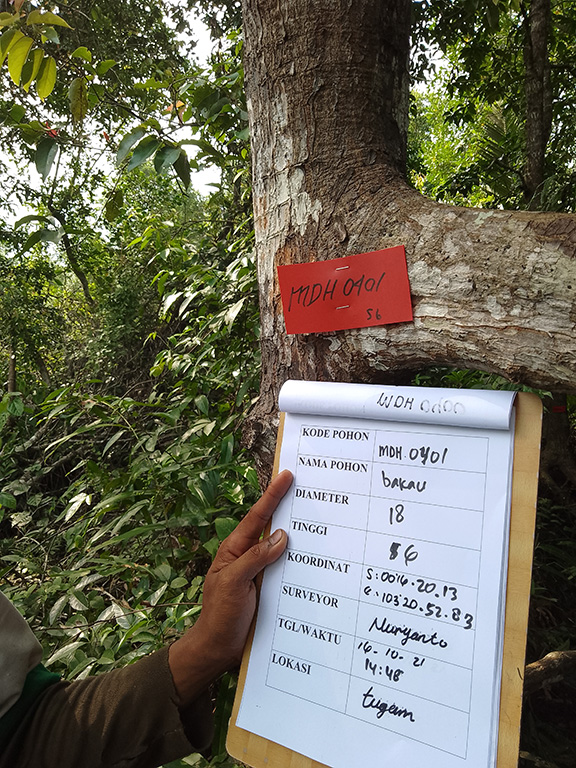 MDH 0401
56
KODE POHON MDH 0401
NAMA POHON bakau
DIAMETER 18
TINGGI 56
KOORDINAT S:00
E:103°20.52.83
SURVEYOR Nuriyanto
TGL/WAKTU 16-10-21
14:48
LOKASI tugum